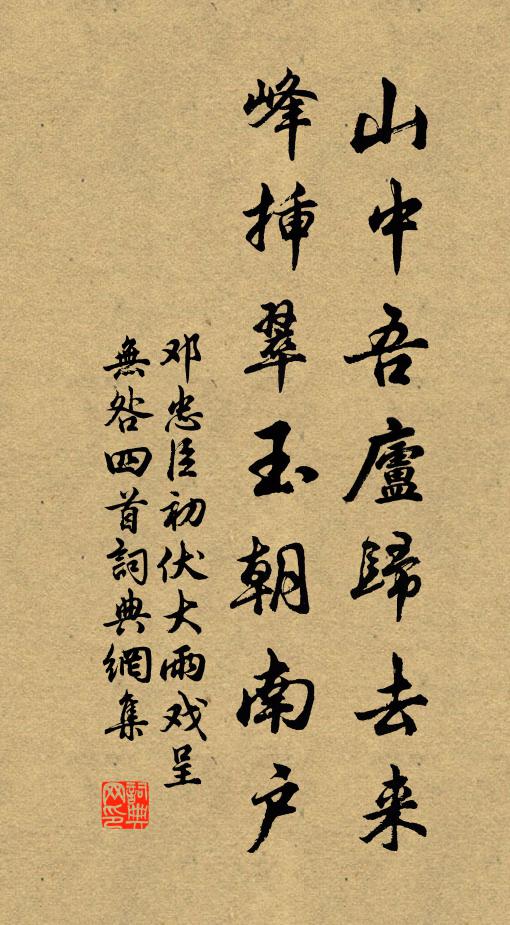 山中吾廬歸去来
峰插翠玉朝南户
邓忠臣初伏大雨戏呈
無咎四首詞典網集
詞典网印